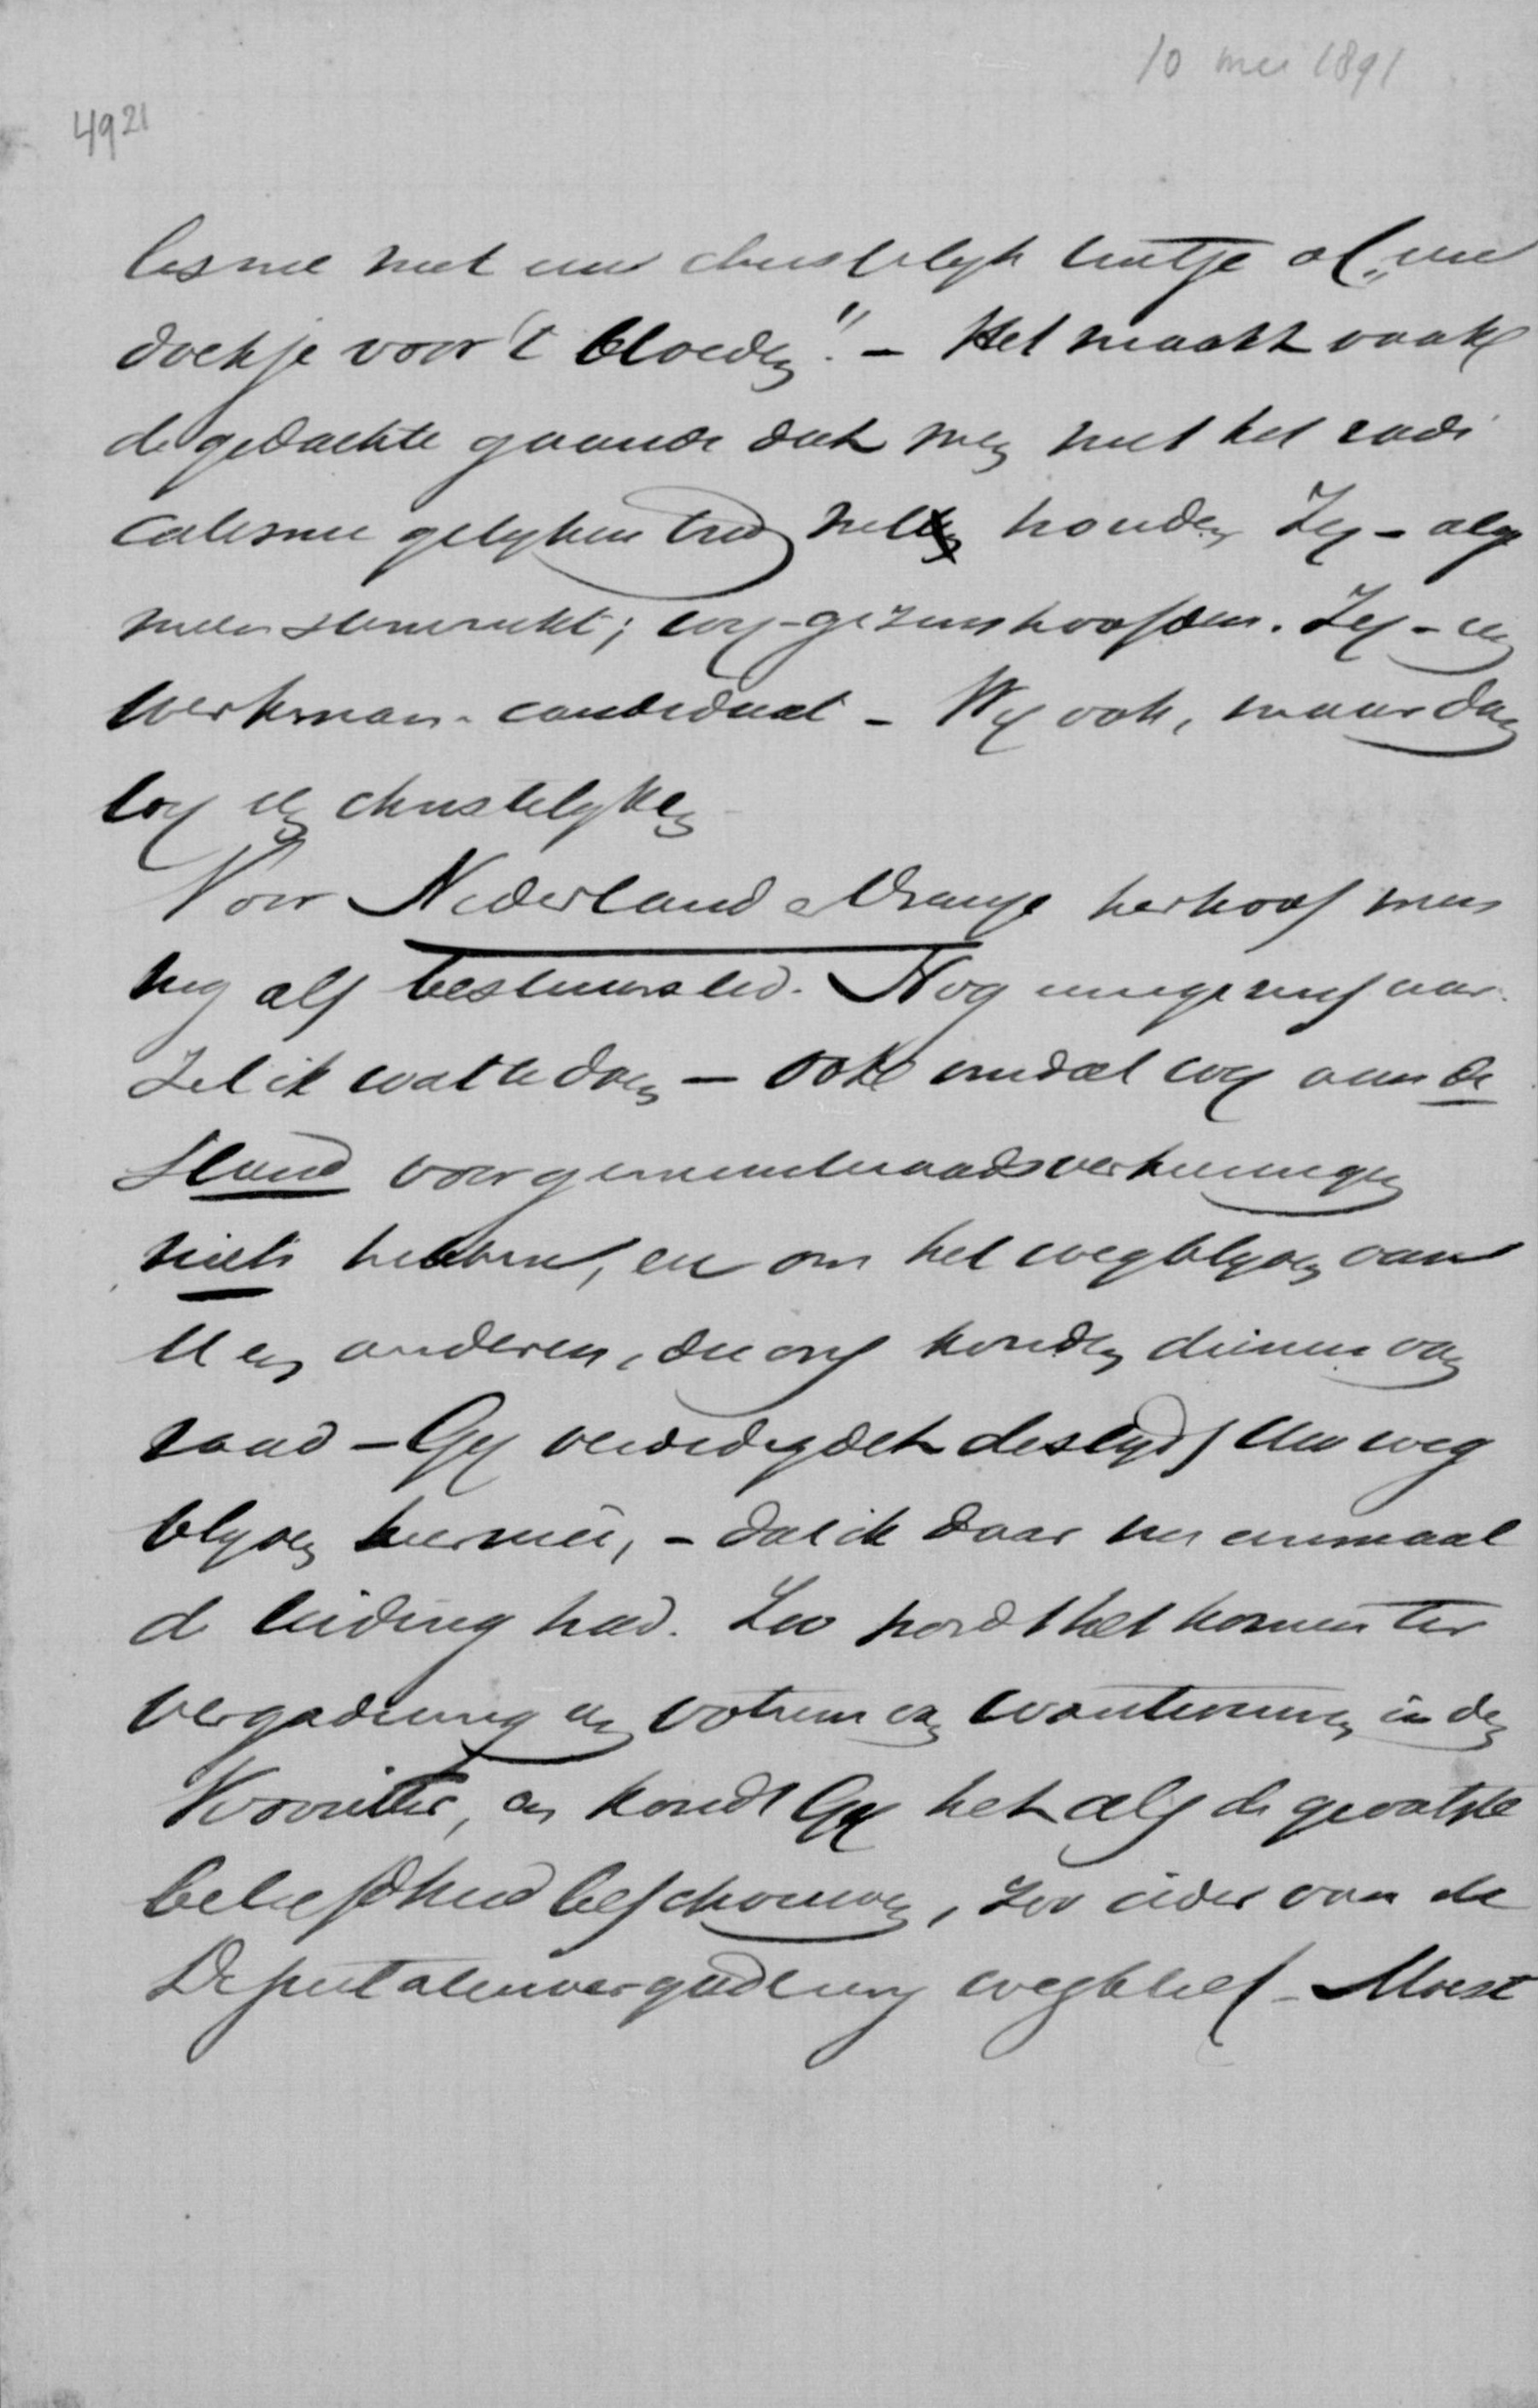 10 mei 1891
4921
lisme met een christelijk tintje als „een
doekje voor 't bloeden". – Het maakt vaak
de gedachte gaande dat men met het radi
calisme gelijken tred wil houden Zij – alge
meen stemrecht; wij – gezinshoofden. Zij – een
werkman-candidaat – Wij ook, maar dan
wij een christelijken
Voor Nederland en Oranje herkoos men
mij als bestuurslid. Nog
Zal ik wat te doen – ook omdat wij aan de
Stand voor gemeenteraadsverkiezingen
niets hebben, en om het wegblijven van
U en anderen, die ons konden dienen van
raad – Gij verdedigdet destijds Uw weg
blijven hiermeê, – dat ik daar nu eenmaal
de leiding had. Zoo wordt het komen ter
vergadering een votum van wantrouwen in den
Voorzitter, en kondt Gij het als de grootste
beleefdheid beschouwen, zoo ieder van de
Deputatenvergadering wegbleef – Moest